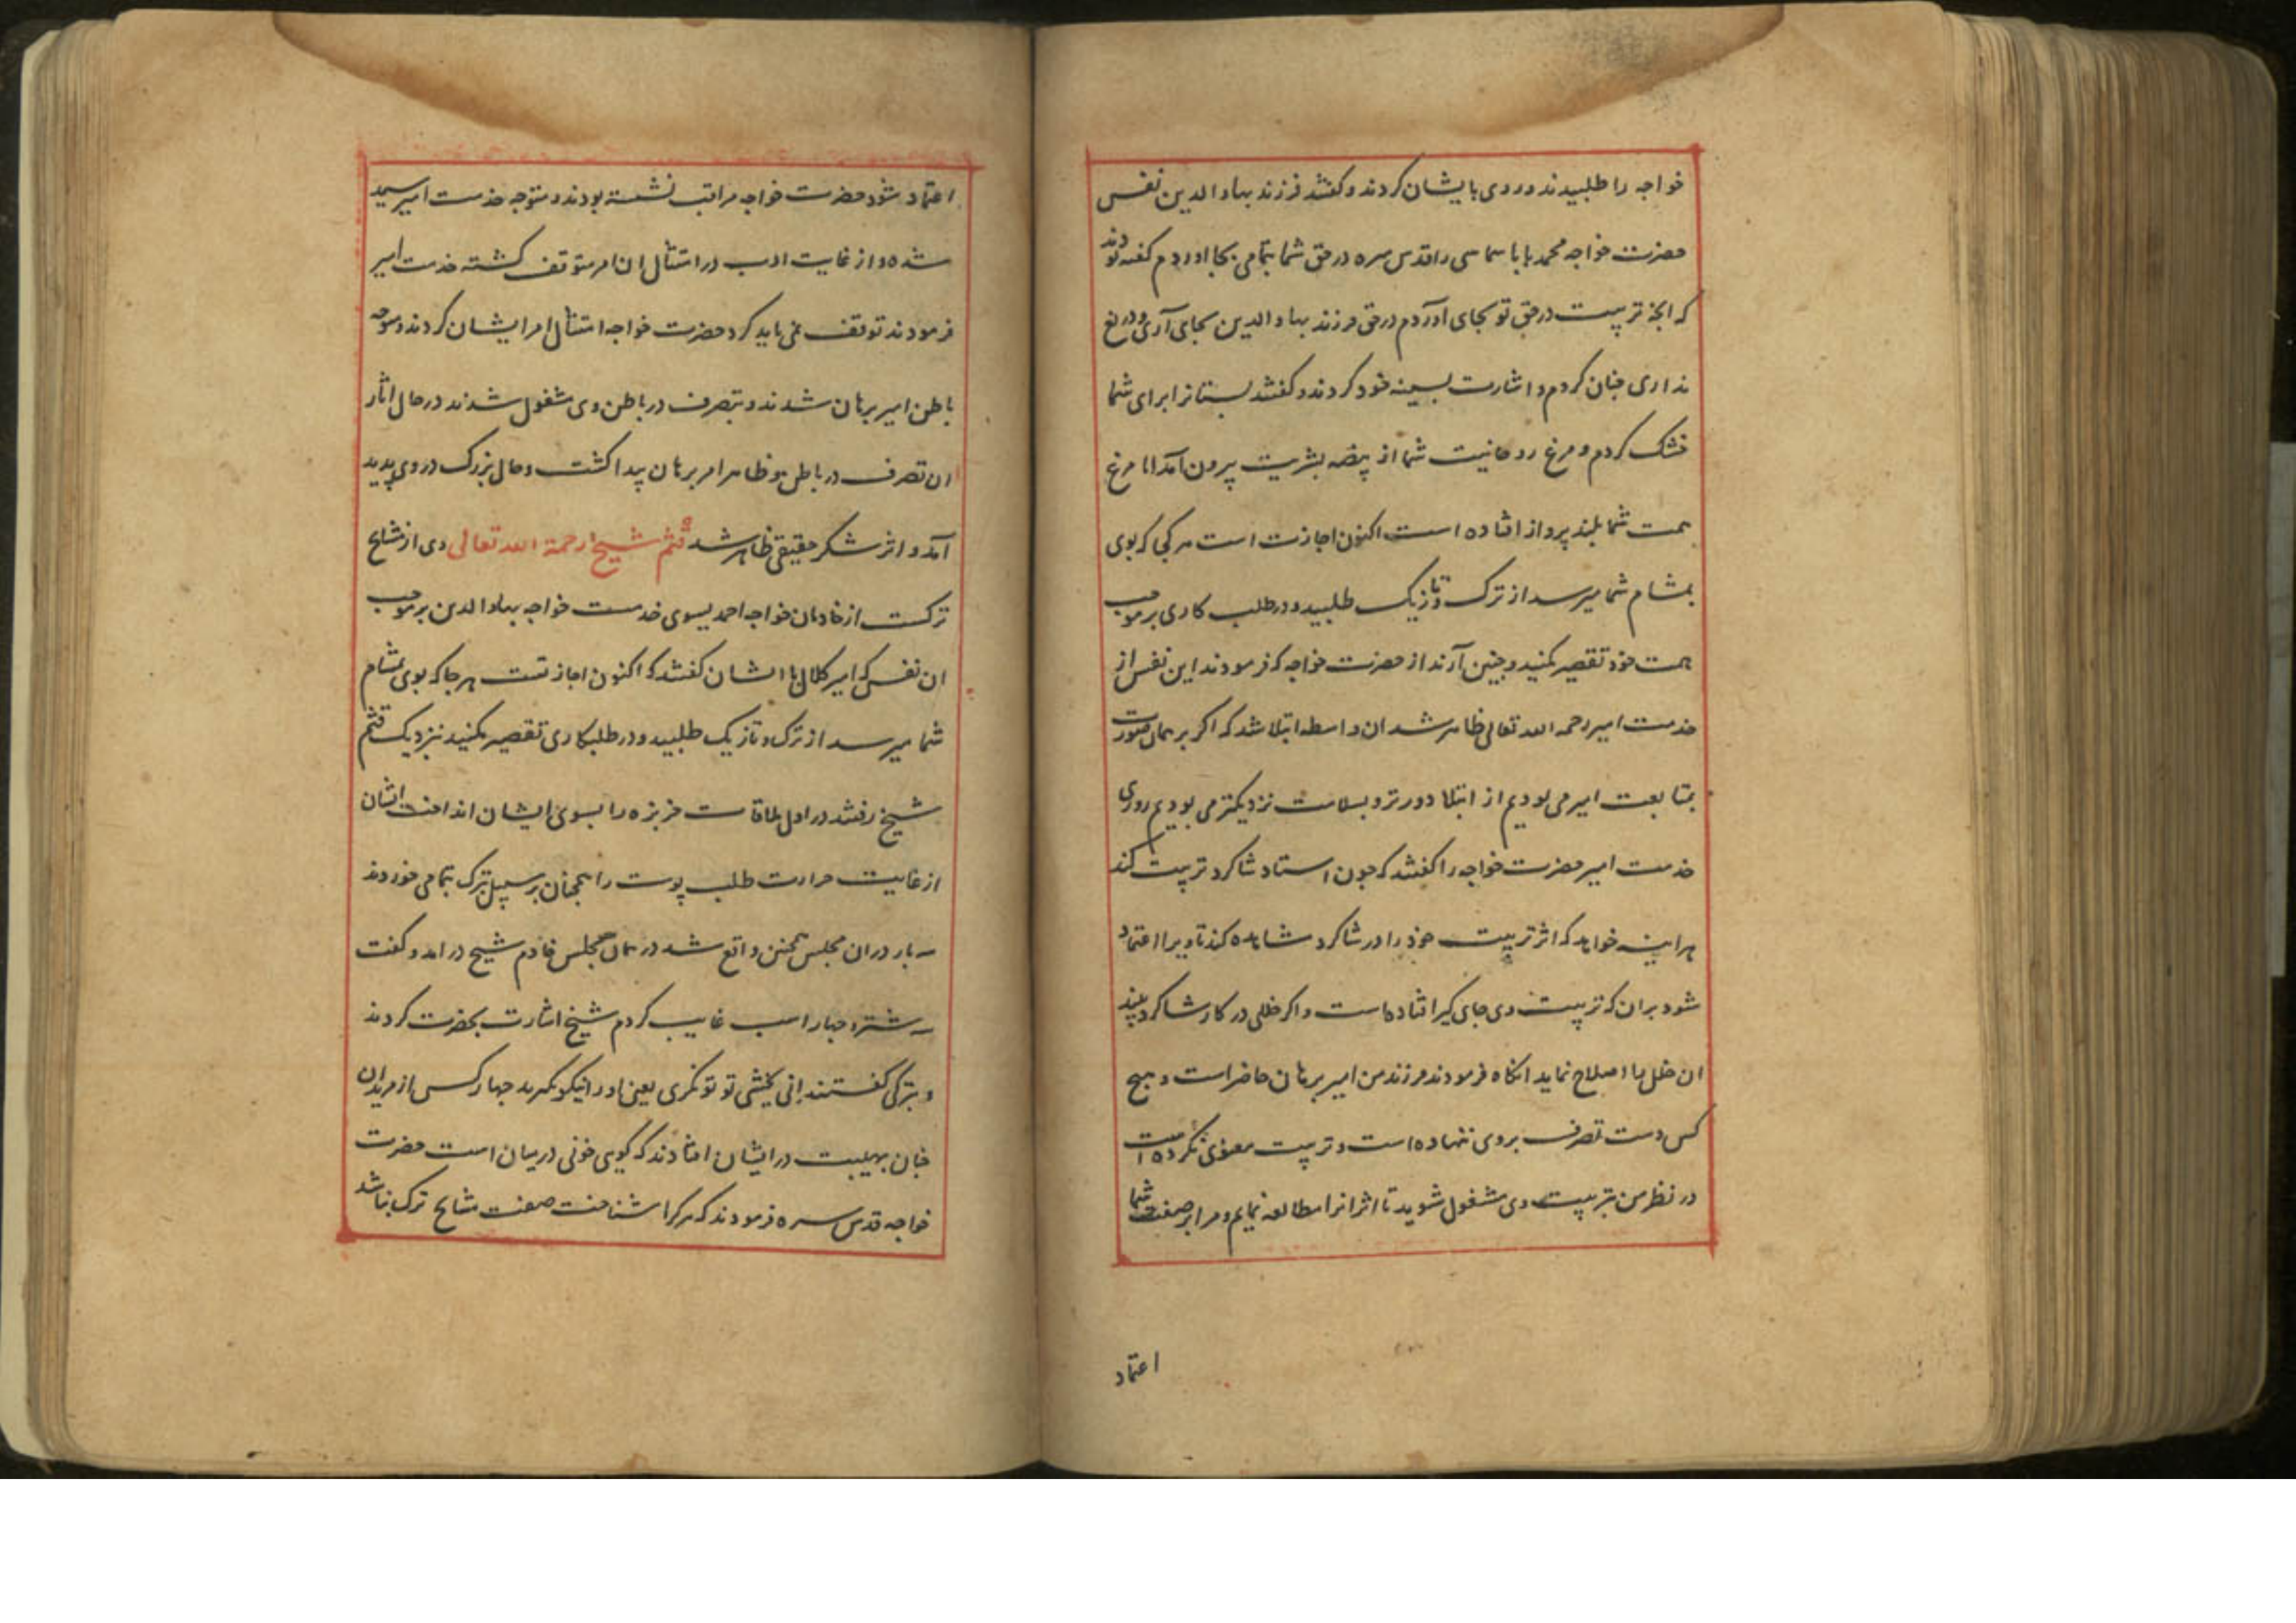 خواجه را طلبیدند و روی بایشان کردند و گفتند فرزند بهاء الدین نفس
حضرت خواجه محمد بابا سماسی را قدس سره در حق شما بتمامی بجا اوردم گفته بودند
که انچه تربیت در حق تو بجای آوردم در حق فرزند بهاء الدین بجای آری و دریغ
نداری چنان کردم و اشارت بسینه خود کردند و گفتند پستانرا برای شما
خشک کردم و مرغ روحانیت شما از بیضه بشریت بیرون آمد اما مرغ
همت شما بلند پرواز افتاده است اکنون اجازت است هر کجا که بوی
بمشام شما میرسد از ترک و تازیک طلبید و در طلب کاری بر موجب
همت خود تقصیر مکنید و چنین آرند از حضرت خواجه که فرمودند این نفس از
خدمت امیر رحمه الله تعالی ظاهر شد ان واسطه ابتلا شد که اکر بر همان صورت
بمتابعت امیر می بودیم از ابتلا دورتر و بسلامت نزدیکتر می بودیم روزی
خدمت امیر حضرت خواجه را گفتند که چون استاد شاکرد تربیت کند
هراینه خواهد که اثر تربیت خود را در شاکرد مشاهده کند تا ویرا اعتماد
شود بران که تربیت وی جای گیر افتاده است و اکر خللی در کار شاکرد بیند
ان خلل را اصلاح نماید انکاه فرمودند فرزند من امیر برهان حاضر است و هیچ
کس دست تصرف بروی ننهاده است و تربیت معنوی نکرده است
در نظر من بتربیت وی مشغول شوید تا اثر انرا مطالعه نمایم و مرا بر صنعت شما
اعتماد
اعتماد شود حضرت خواجه مراقب نشسته بودند و متوجه خدمت امیر سید
شده و از غایت ادب در امتثال ان امر متوقف کشته خدمت امیر
فرمودند توقف نمی باید کرد حضرت خواجه امتثال امر ایشان کردند و متوجه
باطن امیر برهان شدند و بتصرف در باطن وی مشغول شدند در حال اثار
ان تصرف در باطن و ظاهر امیر برهان پیدا کشت و حال بزرک در وی پدید
آمد و اثر شکر حقیقی ظاهر شد قثم شیخ رحمة الله تعالی وی از مشایخ
ترکست از خادمان خواجه احمد یسوی خدمت خواجه بهاء الدین بر موجب
ان نفس که امیر کلال با ایشان گفتند که اکنون اجازتست هر جا که بوی بمشام
شما میرسد از ترک و تازیک طلبید و در طلبکاری تقصیر مکنید نزدیک قثم
شیخ رفتند در اول ملاقات خربزه را بسوی ایشان انداخت ایشان
از غایت حرارت طلب پوست را همچنان بر سبیل تبرک بتمامی خوردند
سه بار دران مجلس همچنین واقع شد در همان مجلس خادم شیخ در امد و گفت
سه شتر و چهار اسب غایب کردم شیخ اشارت بحضرت کردند
و بترکی گفتند انی یخشی توتونکری یعنی او را نیکو بگیرید چهار کس از مریدان
چنان بهیبت در ایشان افتادند که گویی خونی در میان است حضرت
خواجه قدس سره فرمودند که هر کرا شناخت صفت مشایخ ترک نباشد